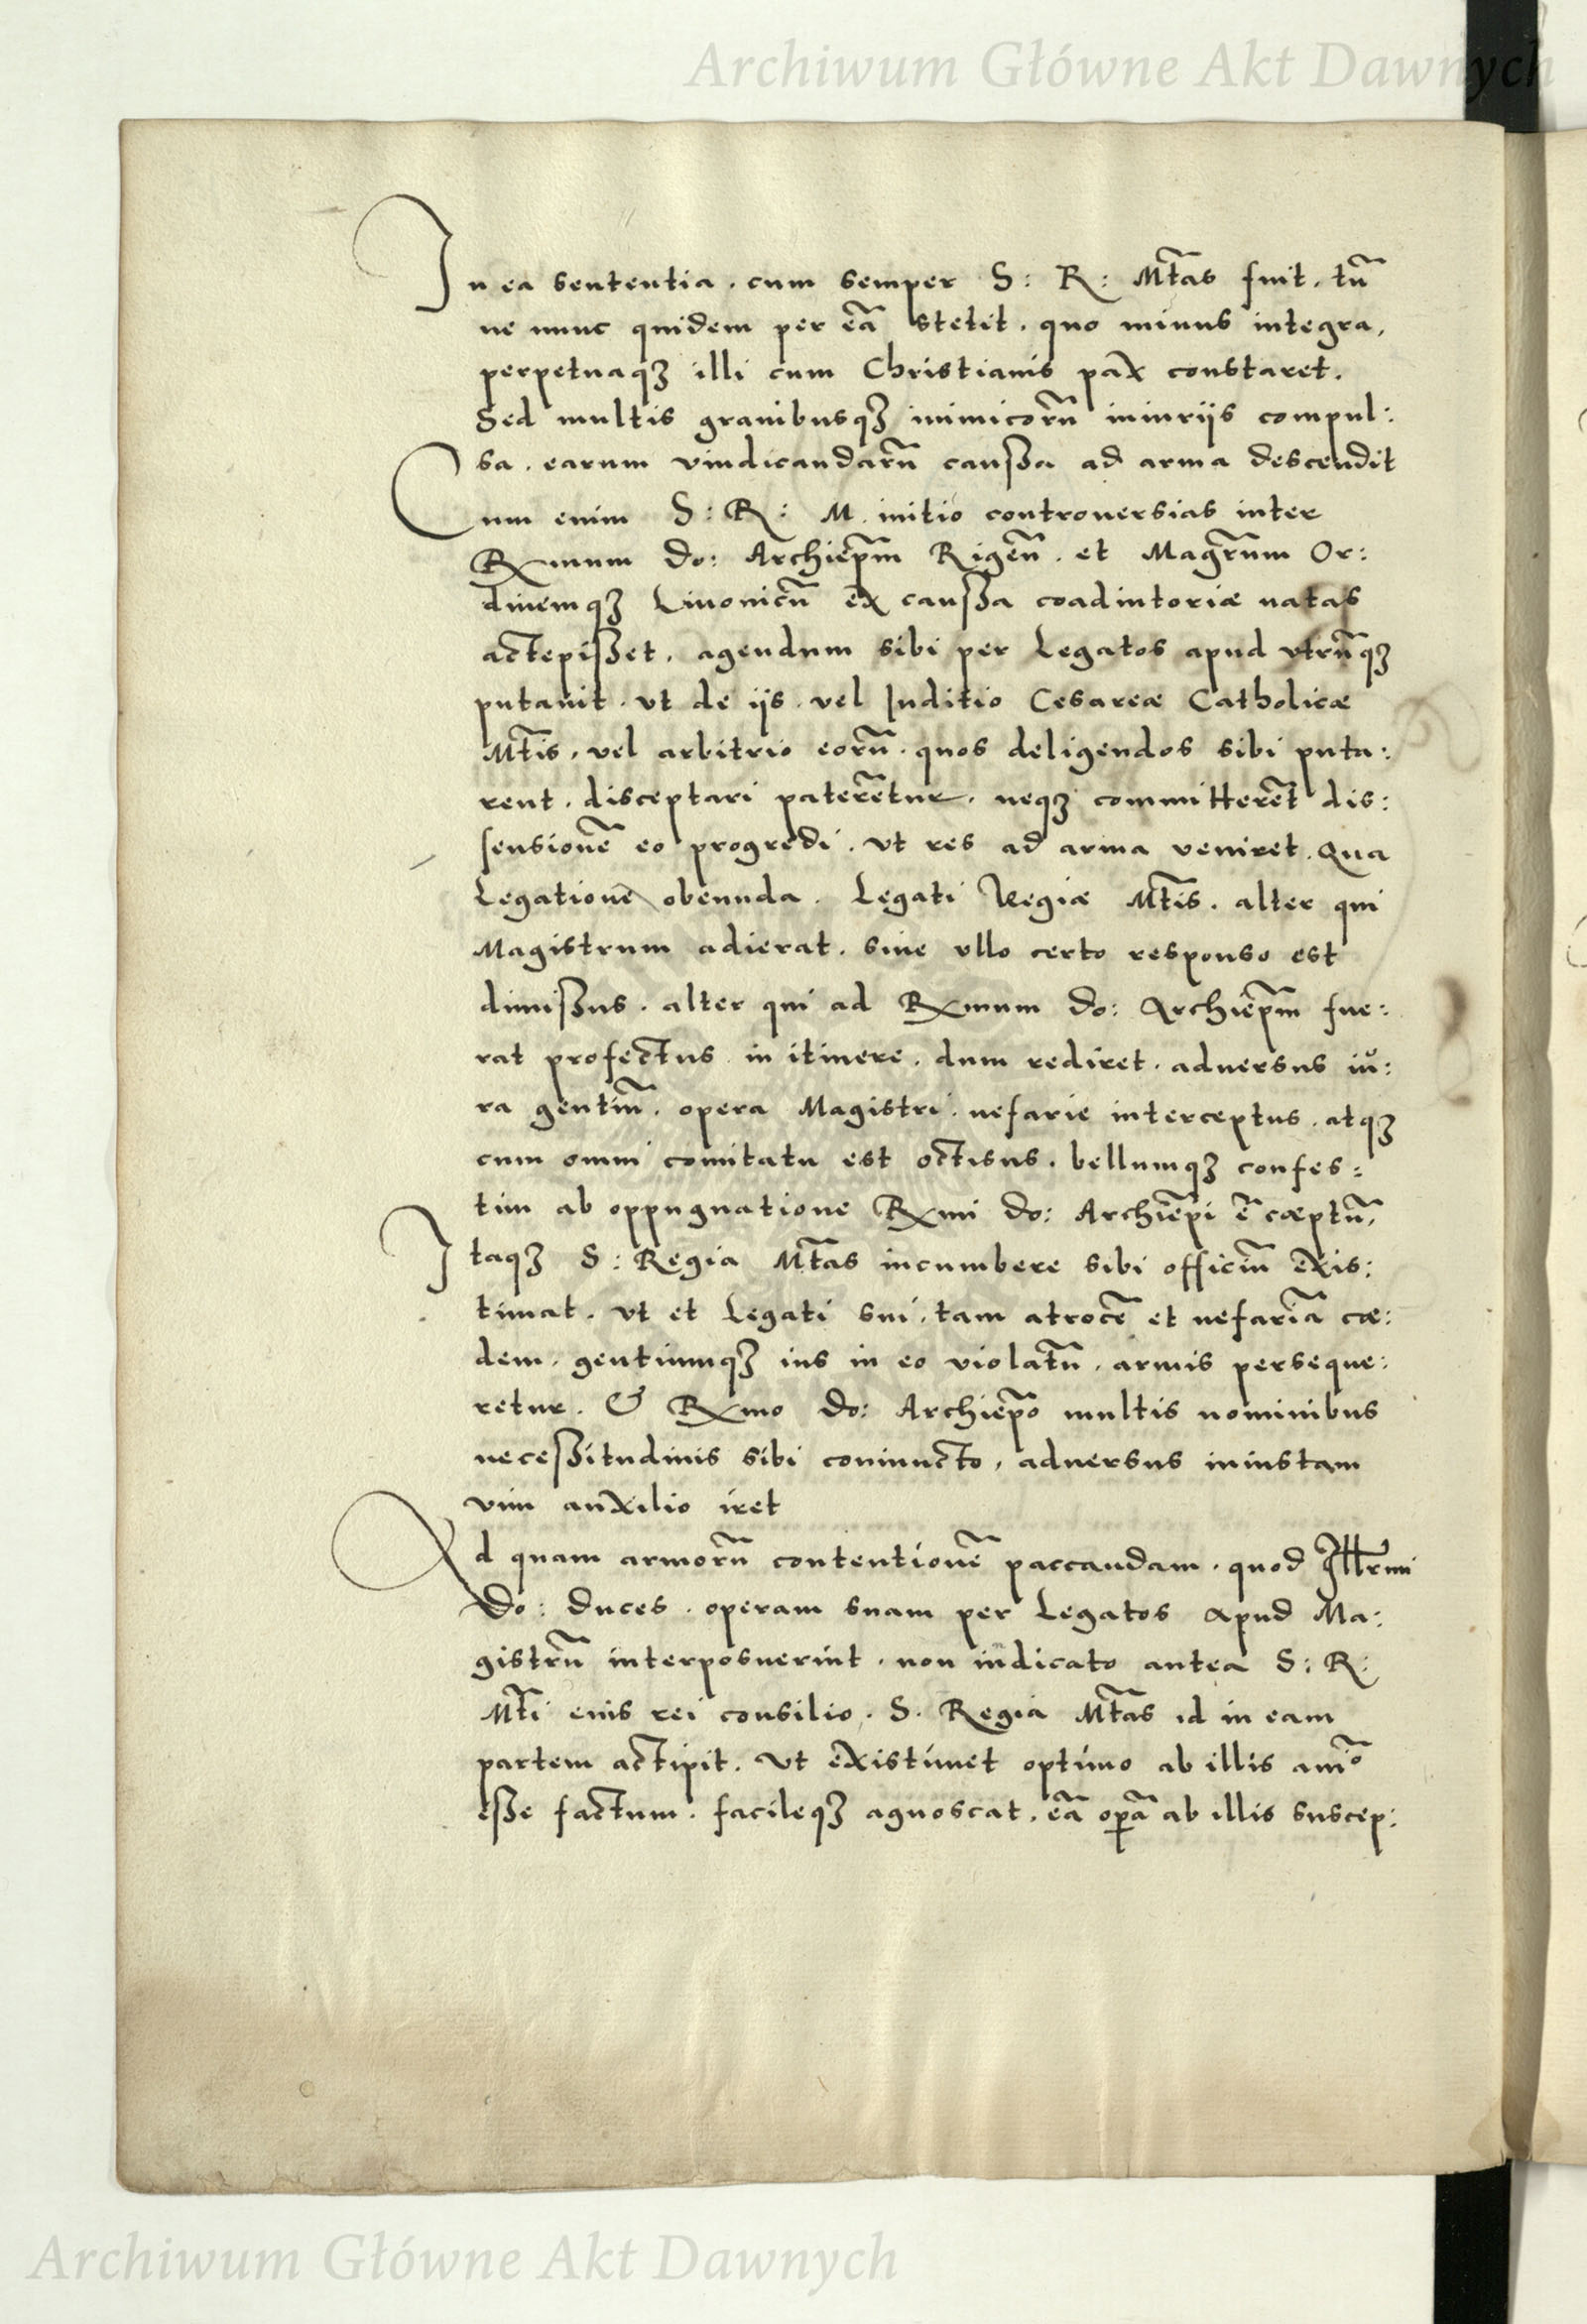 Archiwum Główne Akt Dawnych
In ea sententia. cum semper S: R: Mt̃as fuit. tũ
ne nunc quidem per eã stetit. quo minus integra,
perpetuaqꝫ illi cum Christianis pax constaret.
Sed multis grauibusqꝫ inimicorũ iniurijs compul:
sa. earum vindicandarũ caussa ad arma descendit
Cum enim S: R: M. initio controuersias inter
Rxmum do: Archiep̃m Rigeñ. et Magr̃um Or:
dinemqꝫ Liuonicũ ex caussa coadiutoriæ natas
actepisset. agendum sibi per Legatos apud vtrũqꝫ
putauit. vt de ijs. vel Iuditio Cesareæ Catholicæ
Mt̃is, vel arbitrio eorũ. quos deligendos sibi puta:
rent. disceptari paterẽtur. neqꝫ committerẽt dis:
sensionẽ eo progredi. vt res ad arma veniret. Qua
Legationẽ obeunda. Legati Regiæ Mt̃is. alter qui
Magistrum adierat. sine vllo certo responso est
dimissus. alter qui ad Rxmum do: Archiep̃m fue:
rat profectus in itinere. dum rediret. aduersus iu:
ra gentiũ. opera Magistri. nefarie interceptus. atqꝫ
cum omni comitatu est octisus. bellumqꝫ confes:
tim ab oppugnatione Rxmi do: Archiep̃i ẽ cæptũ.
Itaqꝫ S: Regia Mt̃as incumbere sibi officiũ exis:
timat. vt et Legati sui. tam atrocẽ et nefariã cæ:
dem. gentiumqꝫ ius in eo violatũ. armis perseque:
retur. & Rxmo do: Archiep̃o multis nominibus
necessitudinis sibi coniuncto, aduersus iniustam
vim auxilio iret
Ad quam armorũ contentionẽ paccandam. quod Illr̃mi
Do: duces. operam suam per Legatos apud Ma:
gistrũ interposuerint. non indicato antea S: R:
Mt̃i euis rei consilio. S. Regia Mt̃as id in eam
partem actipit. vt existimet optimo ab illis anĩo
esse factum. facileqꝫ agnoscat. eã op̃ã ab illis suscep:
Archiwum Główne Akt Dawnych